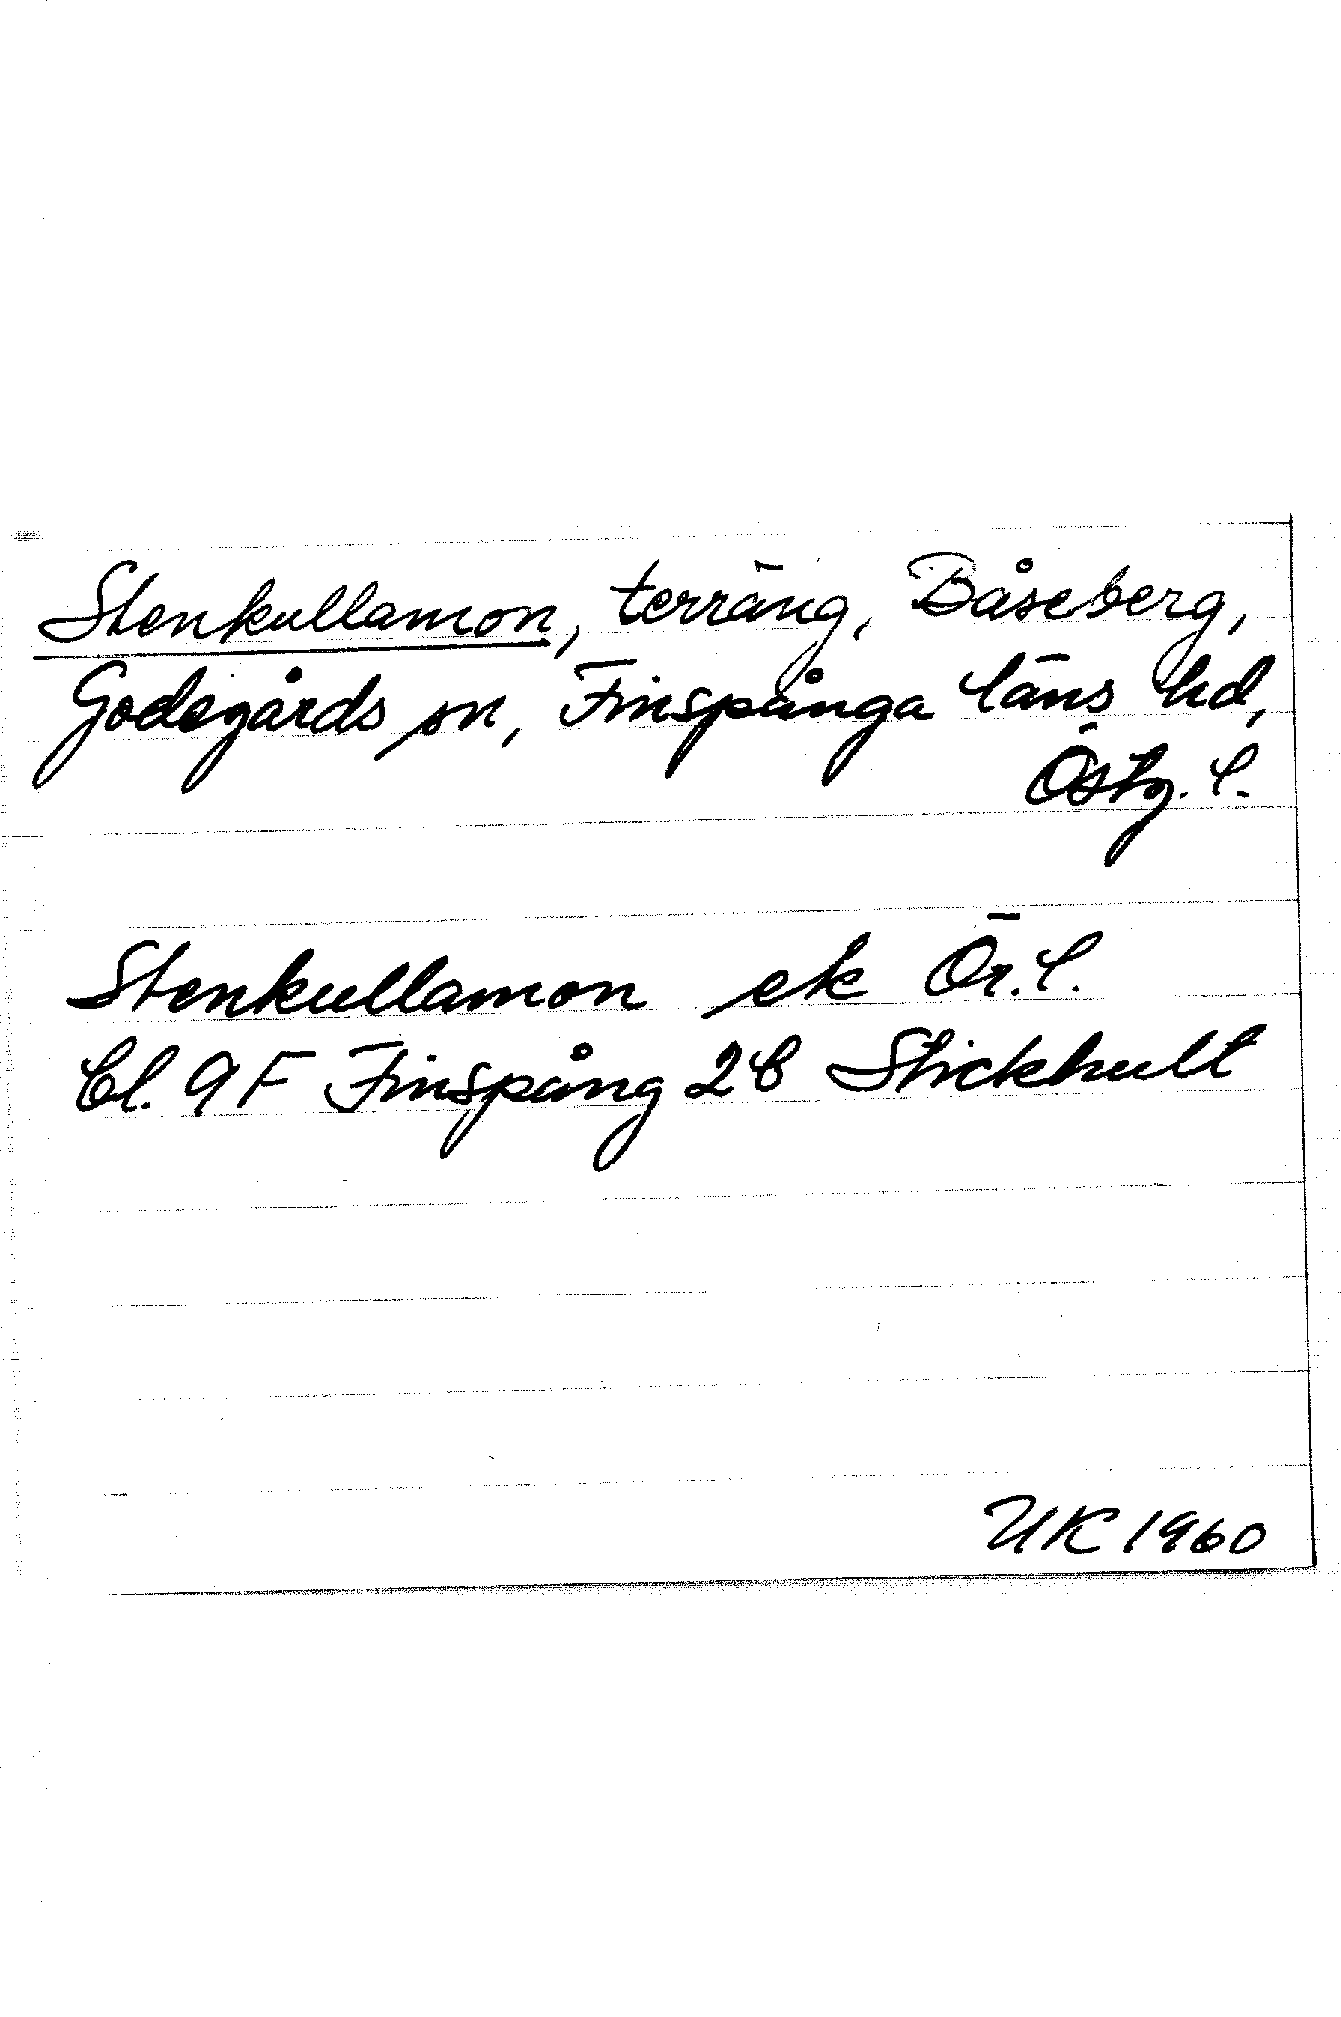 Stenkullamon, terräng, Båseberg,
Godegårds sn, Finspånga läns hd,
Östg. l.
Stenkullamon ek Ör. l.
Bl. 9F Finspång 2 b Stickhult
UK 1960